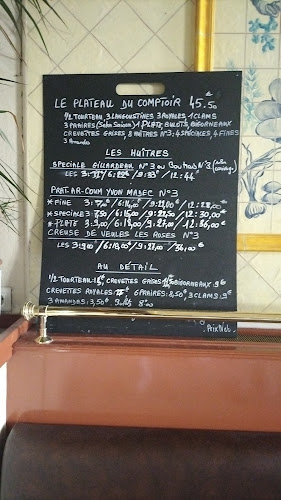 LE PLATEAU DU COMPTOIR 45.50
1/2 TOURTEAU, 3 LANGOUSTINES 3 ROYALES, 1 CLAMS
3 PRAIRES (Selon Saison) 1 PLATE BULOTS, BIGORNEAUX
CREVETTES GRISES, 8 HUÎTRES N°3; 4 SPÉCIALES, 4 FINES
3 Amandes
LES HUÎTRES
SPECIALE GILLARDEAU N°3 ou N°3
LES 3: / 6: / 9: 33€ / 12: 44€
PRAT-AR-COUM YVON MADEC N°3
* FINE 3: 7,00€ / 6: 14,00 / 9: 21,00 / 12: 28,00€
* SPECIALE 3: 7,50 / 6: 15,00 / 9: 22,50 / 12: 30,00€
* PLATE 3: 9,00 / 6: / 9: 27,00 / 12: 36,00€
CREUSE DE VEULES LES ROSES N°3
LES 3: 9,00 / 6: 18,00€ / 9: 27,00 / 36,00€
AU DÉTAIL
1/2 TOURTEAU: CREVETTES GRISES BIGORNEAUX 9€
CREVETTES ROYALES: 6 PRAIRES: 8,50€ 3 CLAMS:
3 AMANDES: 3,50€